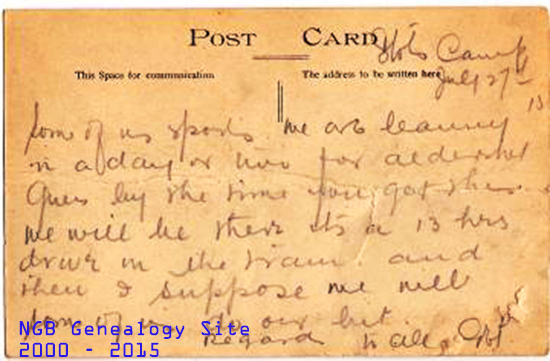 POST CARD
Stobs Camp
This Space for communication
The address to be written here
July 27th
15
Some of us sports we are leaving
in a day or two for aldershot
by the time you get this
we will be there its a 13 hrs
drive in the train. and
then I suppose we will
some of do our bit
Regard to all
NGB Genealogy Site
2000 - 2015